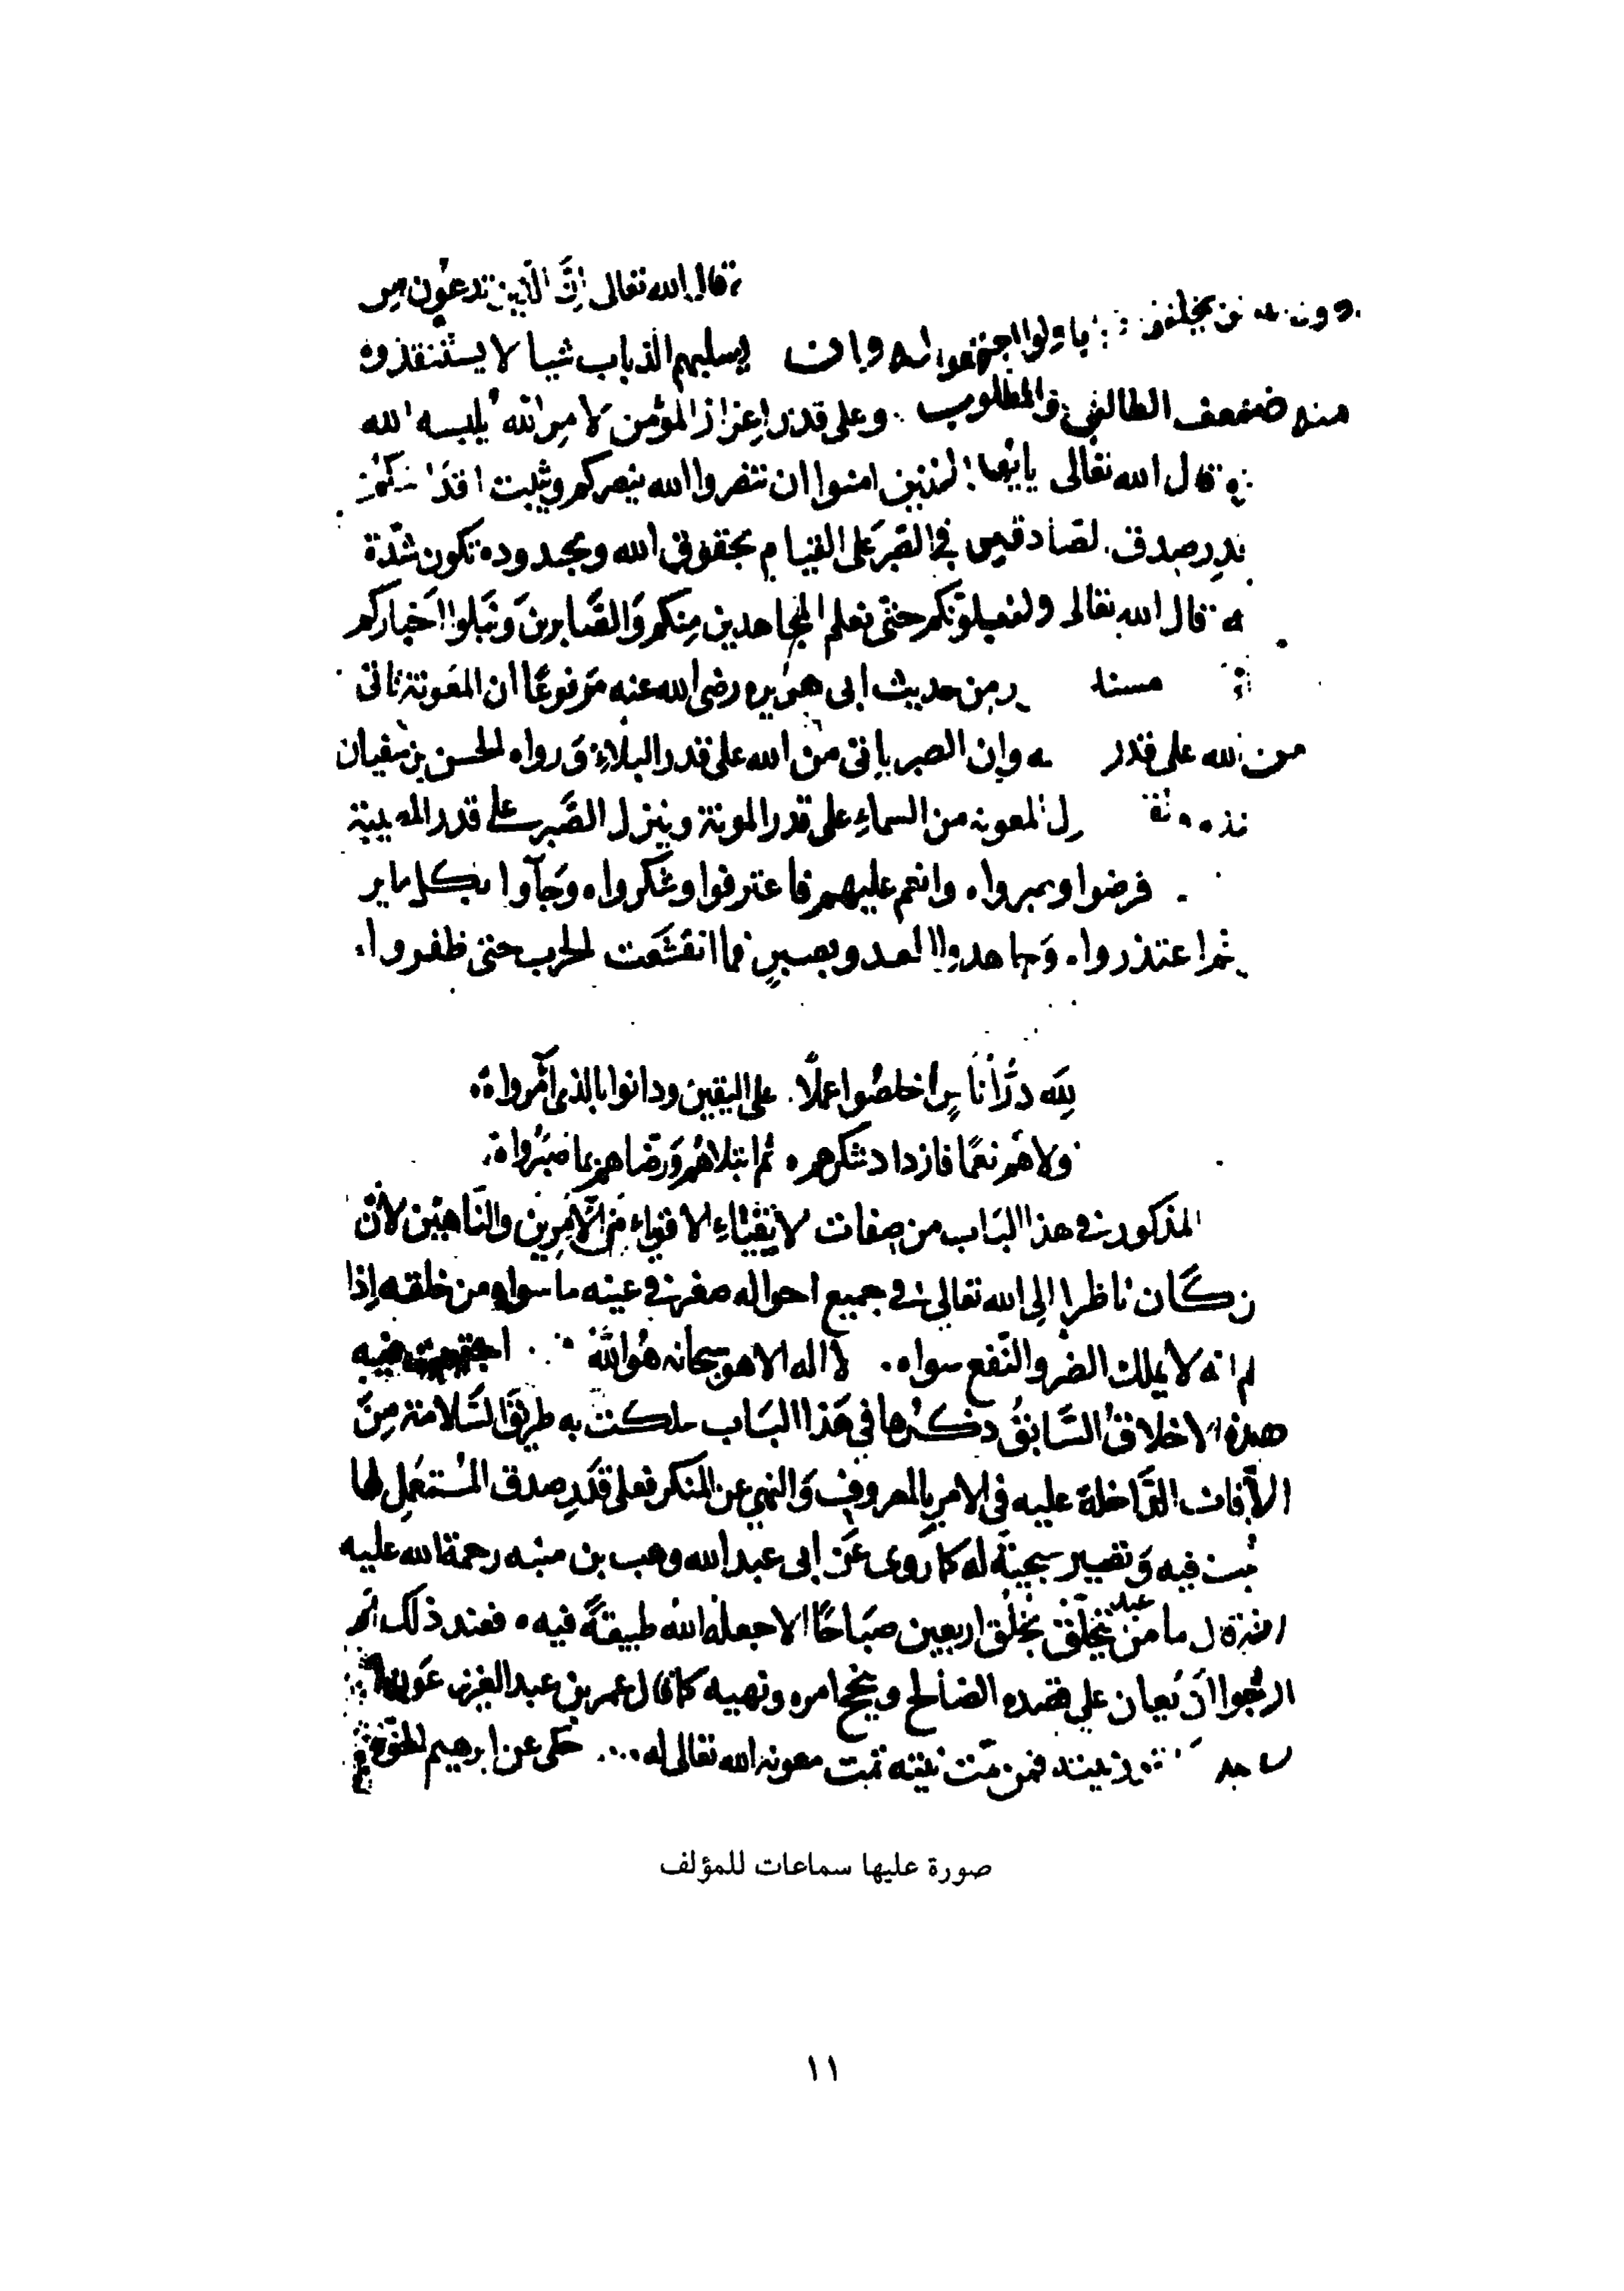 قال الله تعالى إنَّ الَّذين تدعون من
دون الله لن يخلقوا ذبابا ولو اجتمعوا له وإن يسلبهم الذباب شيا لا يستنقذوه
منه ضعف الطالب والمطلوب وعلى قدر إعزاز المؤمن لامر الله يلبسه الله
قال الله تعالى يايها الذين امنوا ان تنصروا الله ينصركم ويثبت اقدامكم
صدق الصادقين في الصبر على القيام بحقوق الله وبحدوده تكون شدة
قال الله تعالى ولنبلونكم حتى نعلم المجاهدين منكم والصَّابرين ونبلوا اخباركم
مسند من حديث ابى هريره رضى الله عنه مرفوعًا ان المعونة تاتى
من الله على قدر وإن الصبر ياتى من الله على قدر البلاءِ ورواه الحسن بن سفيان
المعونه من السماءِ على قدر المونة وينزل الصَّبر على قدر المصيبة
فرضوا وصبروا ٥ وانعم عليهم فاعترفوا وشكروا ٥ وجآوا بكل ما
ثم اعتذروا ٥ وَجاهدوا العدو بصبرٍ فما انقشعت الحرب حتى ظفروا
لِلَّه درُّ أناسٍ أخلصُوا عملًا على اليقين ودانوا بالذى أمروا
اولاهُم نعمًا فازداد شكرهم ٥ ثم ابتلاهُم ورَضاهم بما صَبَرُوا
المذكورة فى هذا البَاب من صفات الاتقياءِ الاقوياء من الآمرين والنَاهين لأنَّ
كَان ناظرا إلى الله تعالى فى جميع احواله صغر فى عينه ما سواه من خلقه إذا
انه لا يملك الضر والنفع سواه ٠ لا اله الا هو سبحانه هُو اللهُ اجتمعت فيه
هذه الاخلاق السَّابقُ ذكرها في هَذا البَاب سلكت به طريق السَّلامة مِنَ
الآفات الدَّاخلة عليه في الامرِ بالمعروفِ وَالنهي عن المنكر فعلى قدرِ صدق المُستعمِل لها
تثبت فيه وَتصير سجيَّة له كما روى عَن ابى عبد الله وهب بن منبه رحمة الله عليه
انه قال ما من عبد يتخلَّق بخُلُق اربعين صبَاحًا الا جعله اللهُ طبيعةً فيه ٥ فعند ذلك
ارجُوا أن يُعان على قصده الصَالح وينجح امره ونهيه كما قال عمر بن عبد العزيز عون
نيته فمن تمّت نيته تمت معونة الله تعالى له ٠٠٠ حكى عن ابرهيم
صورة عليها سماعات للمؤلف
١١